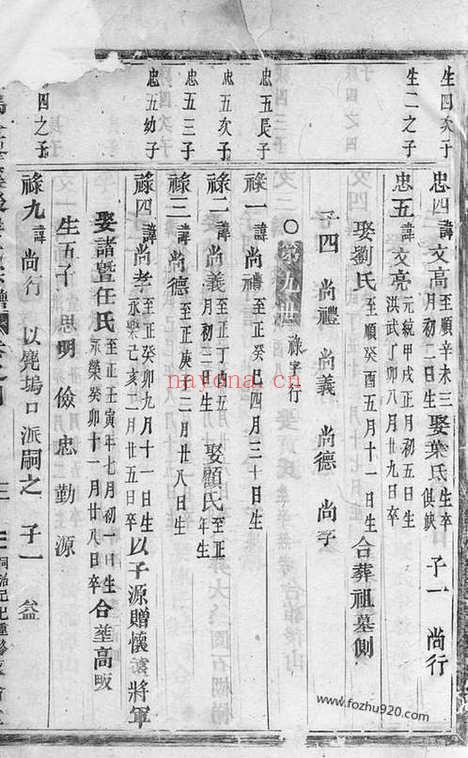 生四次子
忠四 諱文高 至順辛未三月初二日生 娶葉氏 生卒俱缺 子一 尚行
生二之子
忠五 諱文亮 元統甲戌正月初五日生 洪武丁卯八月廿九日卒
娶劉氏 至順癸酉五月十一日生卒 合葬祖墓側
子四 尚禮 尚義 尚德 尚孝
○第九世 祿字行
忠五長子
祿一 諱尚禮 至正癸巳四月三十日生
忠五次子
祿二 諱尚義 至正丁酉四月初三日生 娶顧氏 至正年生
忠五三子
祿三 諱尚德 至正庚子二月廿八日生
忠五幼子
祿四 諱尚孝 至正癸卯九月十一日生 永樂己亥二月廿五日卒 以子源贈懷遠將軍
娶諸暨任氏 至正壬寅年七月初一日生 永樂癸卯十一月廿八日卒 合葬高畈
生五子 思明 儉 忠 勤 源
忠四之子
祿九 諱尚行 以 塢口派嗣之 子一
nayona.cn
www.fozhu920.com